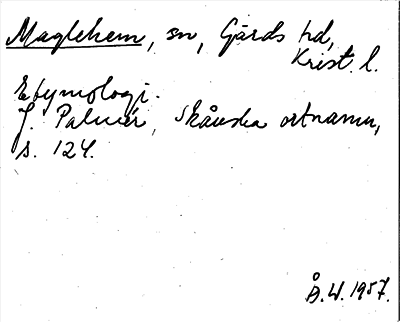 Maglehem, sn, Gärds hd,
Krist. l.
Etymologi.
J. Palmér, Skånska ortnamn,
s. 124.
Å.W. 1957.